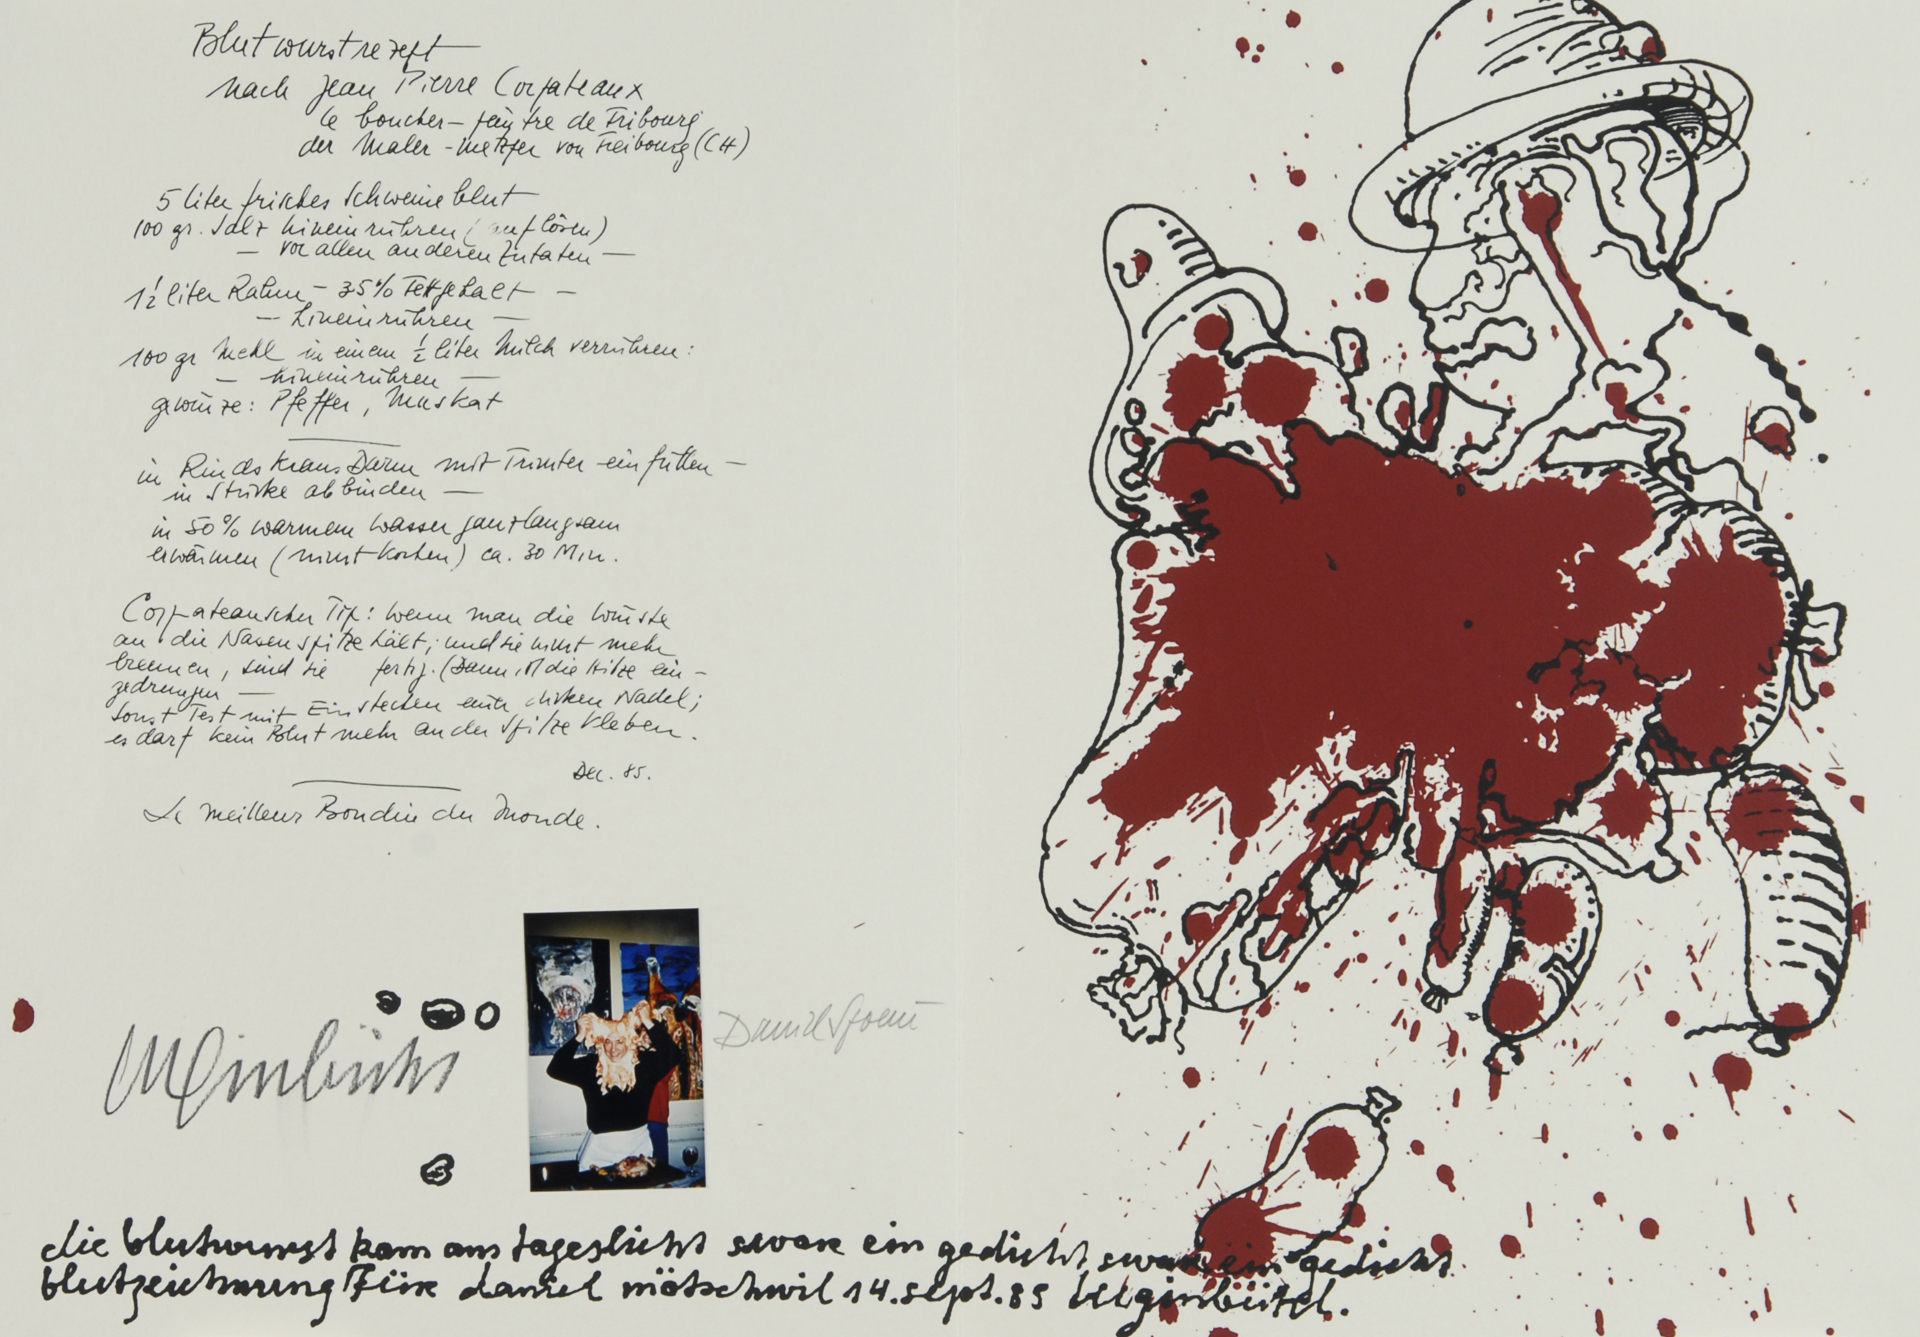 Blutwurstrezept
nach Jean Pierre Corpateaux
le boucher-peintre de Fribourg
der Maler-Metzger von Freibourg (CH)
5 liter frisches Schweineblut
100 gr. Salz hineinrühren (auflösen)
— vor allen anderen Zutaten —
1½ liter Rahm – 35% Fettgehalt —
— hineinrühren —
100 gr Mehl in einem ½ liter Milch verrühren:
— hineinrühren —
gewürze: Pfeffer, Muskat
in Rinds Krans Darm mit Trichter einfüllen —
in Stücke abbinden —
in 50% warmem Wasser ganz langsam
erwärmen (nicht kochen) ca. 30 Min.
Corpateauscher Tip: wenn man die Würste
an die Nasenspitze hält; und sie nicht mehr
brennen, sind sie fertig. (Dann ist die Hitze ein-
gedrungen —
sonst Test mit Einstechen einer dicken Nadel;
es darf kein Blut mehr an der Spitze kleben.
Dec. 85.
Le meilleur Boudin du Monde.
Daniel Spoerri
die blutwurst kam ans tageslicht swar ein gedicht, swar ein gedicht
blutzeichnung für daniel mötschwil 14. sept. 85